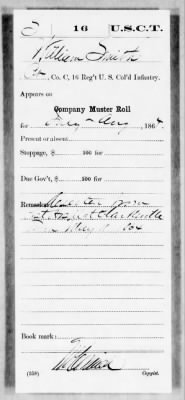 S | 16 | U.S.C.T.
William Smith
Co. C, 16 Reg't U. S. Col'd Infantry.
Appears on
Company Muster Roll
for July & Aug, 1864.
Present or absent
Stoppage, $ 100 for
Due Gov't, $ 100 for
Remarks: Deserter from
Clarksville
Tenn May
Book mark:
(358) Copyist.